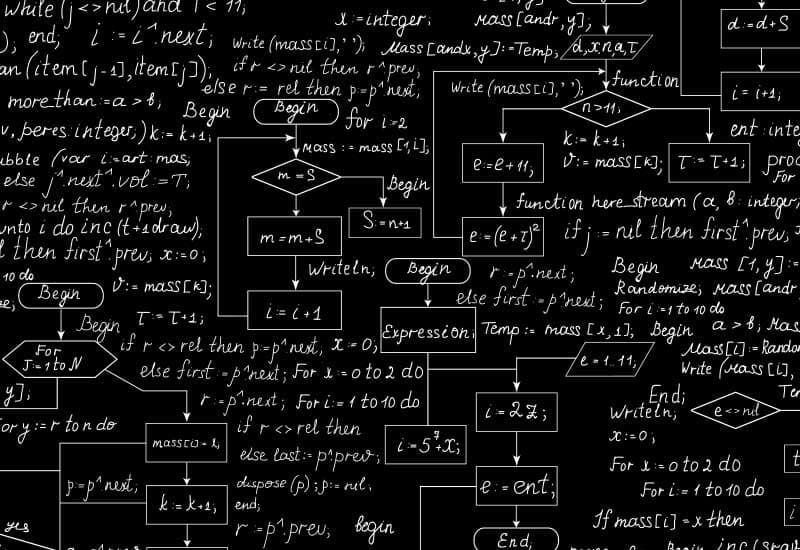 while (j <> nil) and i < 11;
x:=integer;
mass [andr, y];
), end;
i := i^.next;
write (mass[i],' ');
Mass [andx, y]:=Temp;
d, x, n, a, τ
d:=d+S
an (item [j-1], item [j]),
if r <> nil then r^prev,
else r := rel then p:=p^next;
function
Write (mass[i],' ');
more_than:=a > b,
Begin
Begin
for i:=2
n>11,
i= i+1,
v, peres integer,) k:= k+1;
Mass := mass [1, i];
k:= k+1;
ent : inte
ubble (var i:=art: mas,
m = S
e:=e+11,
v:= mass [k];
τ:= τ+1;
else j^.next^.vol:=T;
Begin
For
r <> nil then r^prev,
function here_stream (a, b: integer,
unto i do inc (t+1 draw);
m=m+S
S:=n+1
e:=(e+τ)²
if j := nil then first^.prev,
l then first^.prev, x:=0,
Writeln,
Begin
r:=p^.next;
Begin
Mass [1, y]:=
10 do
Begin
v:= mass [k];
else first:=p^next;
Randomize, mass [andr
τ:= τ+1;
i:= i+1
For i:=1 to 10 do
Begin
Expression;
Temp:= mass [x,1];
Begin
a > b,
For J:=1 to N
if r <> rel then p:=p^next, x:=0;
e=1..11;
Mass[i]:=Random
else first:=p^next; For x:=0 to 2 do
Write (Mass [i],
y];
r:=p^.next; For i:=1 to 10 do
i:=2Z;
End;
e <> nil
Writeln;
for y:= r to n do
if r <> rel then
x:=0;
else last:=p^.prev;
For x:=0 to 2 do
p:=p^next;
dispose (p); p:= nil,
e:=ent;
For i:=1 to 10 do
k:= k+1,
end;
yes
r:=p^.prev,
begin
End,
If mass[i]=x then